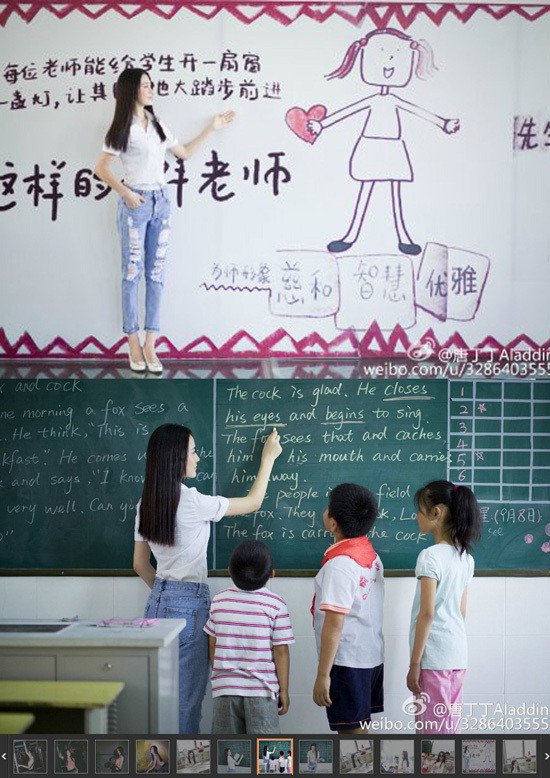 每位老师能给学生开一扇窗
一盏灯，让其 地大踏步前进
这样的 样老师
先生
为师形象
慈和
智慧
优雅
@唐丁丁Aladdin
weibo.com/u/3286403555
and cock
one morning a fox sees a
He think, "This is
kfast." He comes u
k and says. "I know
very well. Can you
The cock is glad. He closes
his eyes and begins to sing.
The fox sees that and caches
him his mouth and carries
him away.
people field
fox. They k, Lo
The fox is carr the cock
1
2
3
4
5
6
星.(9月8日)
@唐丁丁Aladdin
weibo.com/u/3286403555